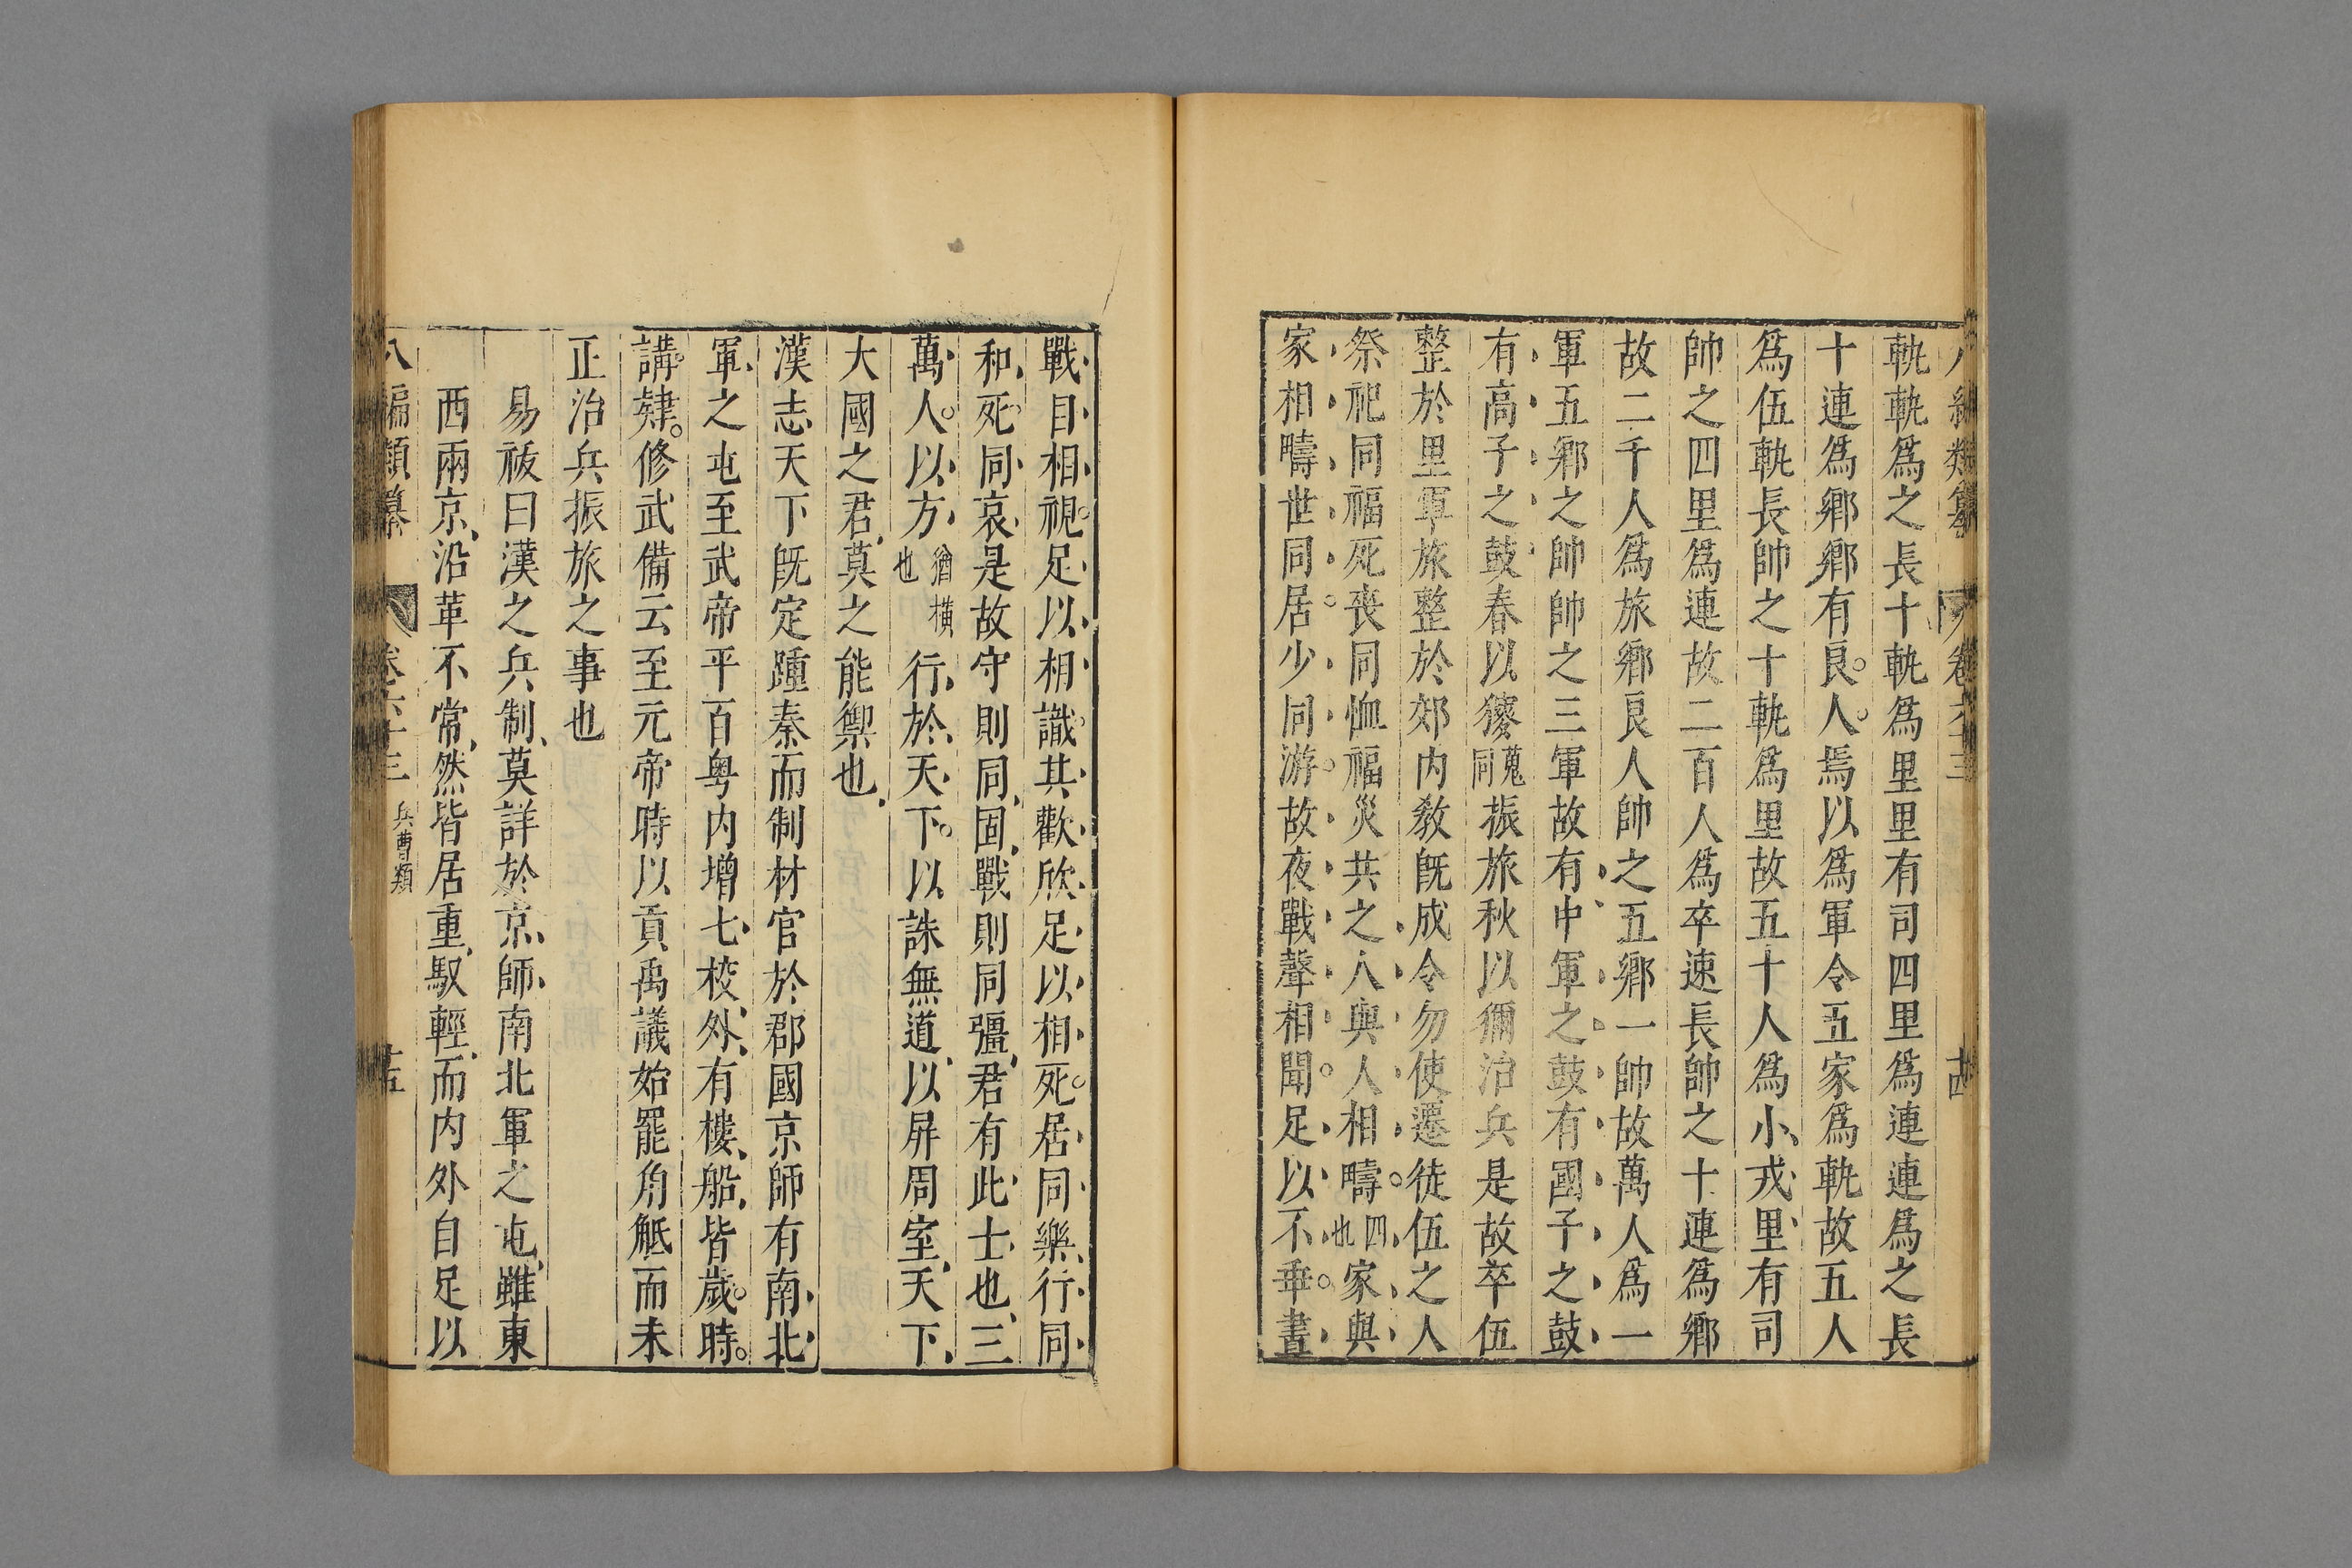 八編類纂 卷六十三 十四
軌軌爲之長十軌爲里里有司四里爲連連爲之長
十連爲鄉鄉有良人焉以爲軍令五家爲軌故五人
爲伍軌長帥之十軌爲里故五十人爲小戎里有司
帥之四里爲連故二百人爲卒連長帥之十連爲鄉
故二千人爲旅鄉良人帥之五鄉一帥故萬人爲一
軍五鄉之帥帥之三軍故有中軍之鼓有國子之鼓
有高子之鼓春以獀蒐同振旅秋以獮治兵是故卒伍
整於里軍旅整於郊内敎旣成令勿使遷徙伍之人
祭祀同福死喪同恤福災共之人與人相疇四也家與
家相疇世同居少同游故夜戰聲相聞足以不乖晝
戰目相視足以相識其歡欣足以相死居同樂行同
和死同哀是故守則同固戰則同彊君有此士也三
萬人以方猶橫也行於天下以誅無道以屏周室天下
大國之君莫之能禦也
漢志天下旣定踵秦而制材官於郡國京師有南北
軍之屯至武帝平百粤内增七校外有樓船皆歲時
講肄修武備云至元帝時以貢禹議始罷角觝而未
正治兵振旅之事也
易祓曰漢之兵制莫詳於京師南北軍之屯雖東
西兩京沿革不常然皆居重馭輕而内外自足以
八編類纂 卷六十三 兵曹類 十五